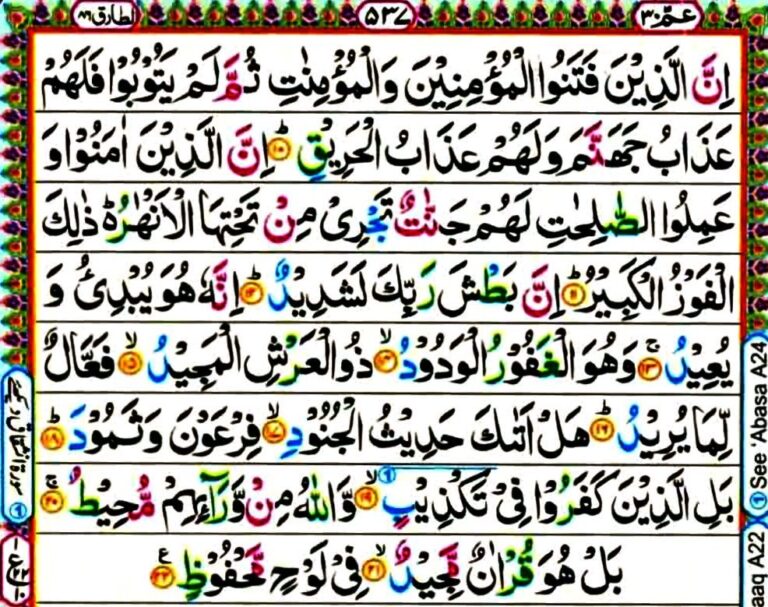 الطارق ٨٦ ٥٣٧ عمّ ٣٠
اِنَّ الَّذِيْنَ فَتَنُوا الْمُؤْمِنِيْنَ وَالْمُؤْمِنٰتِ ثُمَّ لَمْ يَتُوْبُوْا فَلَهُمْ
عَذَابُ جَهَنَّمَ وَلَهُمْ عَذَابُ الْحَرِيْقِ ؕ۝۱۰ اِنَّ الَّذِيْنَ اٰمَنُوْا وَ
عَمِلُوا الصّٰلِحٰتِ لَهُمْ جَنّٰتٌ تَجْرِىْ مِنْ تَحْتِهَا الْاَنْهٰرُ ؕ ذٰلِكَ
الْفَوْزُ الْكَبِيْرُ ؕ۝۱۱ اِنَّ بَطْشَ رَبِّكَ لَشَدِيْدٌ ؕ۝۱۲ اِنَّهٗ هُوَ يُبْدِئُ وَ
يُعِيْدُ ۚ۝۱۳ وَهُوَ الْغَفُوْرُ الْوَدُوْدُ ۙ۝۱۴ ذُو الْعَرْشِ الْمَجِيْدُ ۙ۝۱۵ فَعَّالٌ
لِّمَا يُرِيْدُ ؕ۝۱۶ هَلْ اَتٰىكَ حَدِيْثُ الْجُنُوْدِ ۙ۝۱۷ فِرْعَوْنَ وَثَمُوْدَ ؕ۝۱۸
بَلِ الَّذِيْنَ كَفَرُوْا فِىْ تَكْذِيْبٍ ۙ۝۱۹ وَّاللّٰهُ مِنْ وَّرَآئِهِمْ مُّحِيْطٌ ۚ۝۲۰
بَلْ هُوَ قُرْاٰنٌ مَّجِيْدٌ ۙ۝۲۱ فِىْ لَوْحٍ مَّحْفُوْظٍ ۝۲۲
① See 'Abasa A24
aaq A22